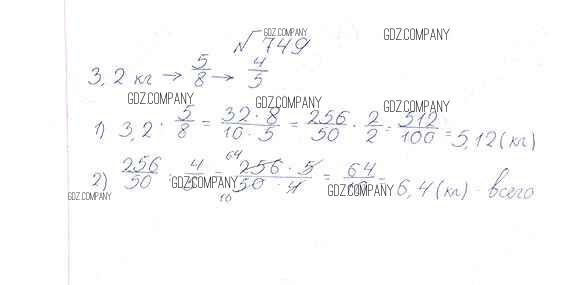 √749
GDZ.COMPANY
GDZ.COMPANY
3,2 кг → 5/8 → 4/5
GDZ.COMPANY
GDZ.COMPANY
GDZ.COMPANY
1) 3,2 · 5/8 = 32·8/10·5 = 256/50 · 2/2 = 512/100 = 5,12 (кг)
2) 256/50 : 4/5 = 256·5/50·4 = 64/10 = 6,4 (кг) - всего
64
10
GDZ.COMPANY
GDZ.COMPANY
GDZ.COMPANY